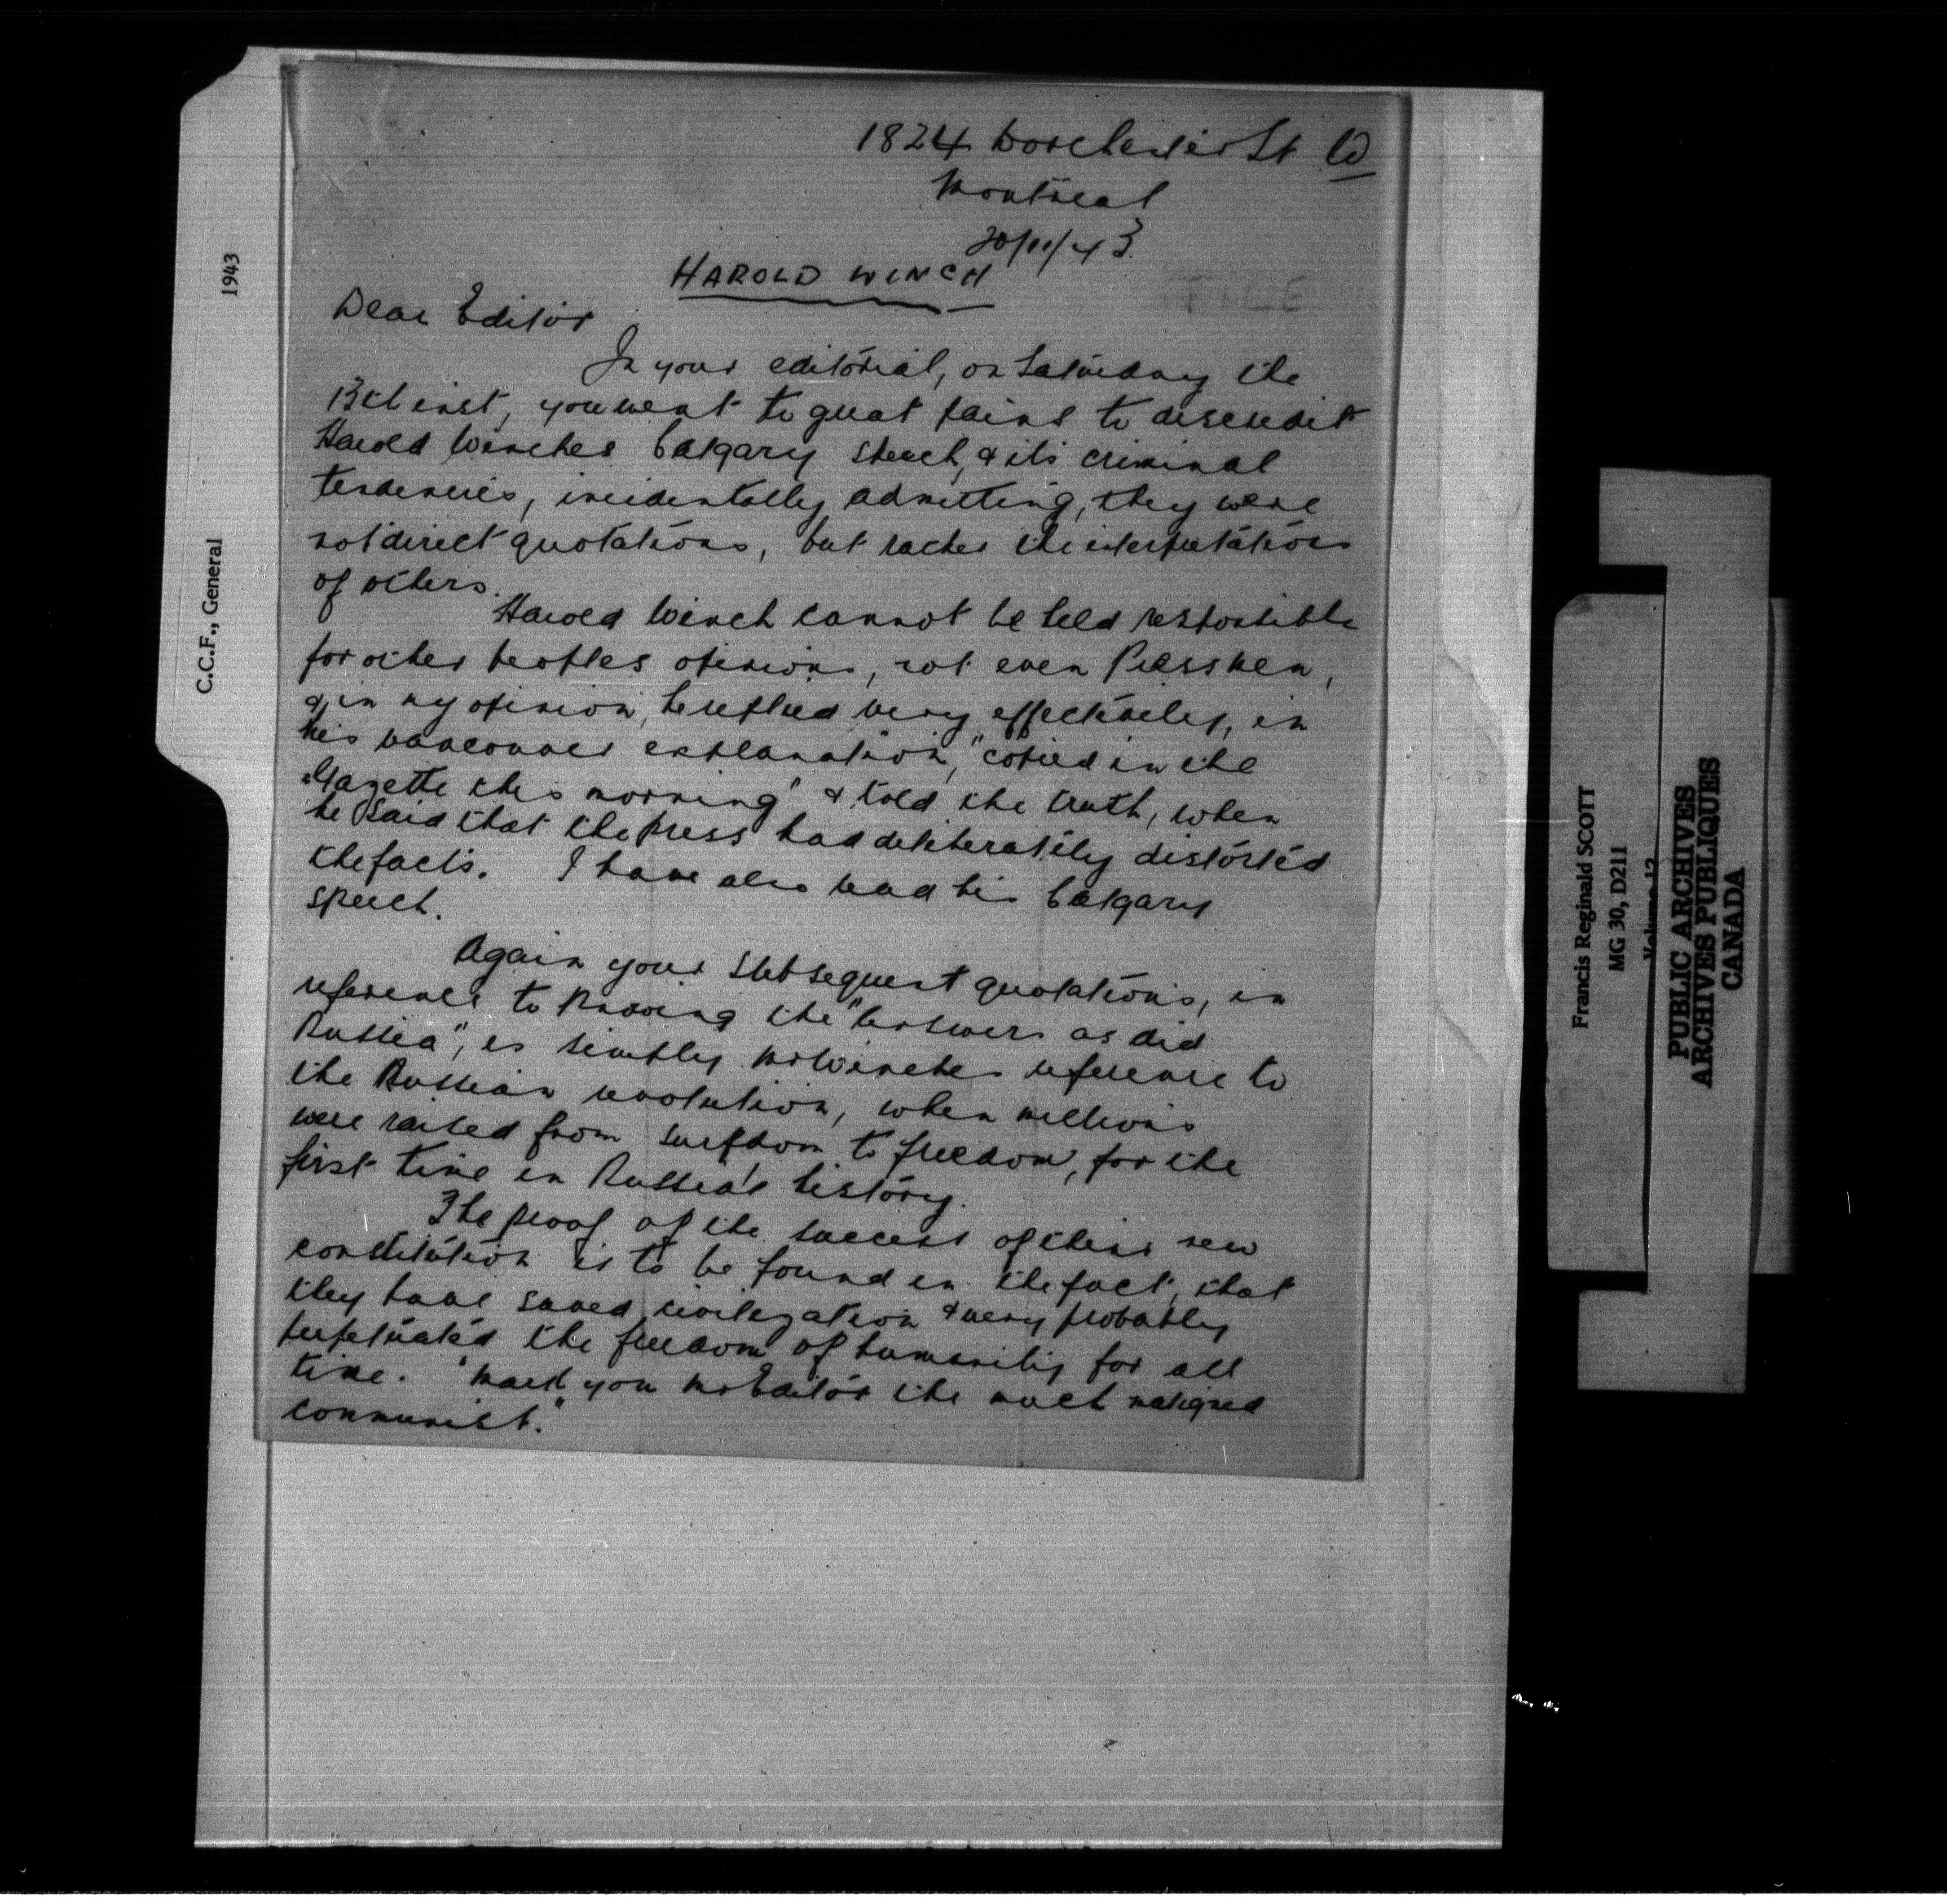 1824 Dorchester St W
Montreal
20/11/43.
HAROLD WINCH
FILE
Dear Editor
In your editorial, on Saturday the
13th inst, you went to great pains to discredit
Harold Winches Calgary speech, & its criminal
tendencies, incidentally admitting, they were
not direct quotations, but rather the interpretations
of others.
Harold Winch cannot be held responsible
for other peoples opinions, not even Pressmen,
&, in my opinion, he replied very effectively, in
his Vancouver explanation, "copied in the
Gazette this morning" & told the truth, when
he said that the press had deliberately distorted
the facts. I have also read his Calgary
speech.
Again your subsequent quotations, in
reference to knowing the "Answers as did
Russia", is simply Mr Winches reference to
the Russian revolution, when millions
were raised from surfdom to freedom, for the
first time in Russia's history.
The proof of the success of their new
constitution is to be found in the fact, that
they have saved civilization & very probably
perpetuated the freedom of humanity for all
time. "Mark you Mr Editor the much maligned
communist."
1943
C.C.F., General
Francis Reginald SCOTT
MG 30, D211
PUBLIC ARCHIVES
ARCHIVES PUBLIQUES
CANADA